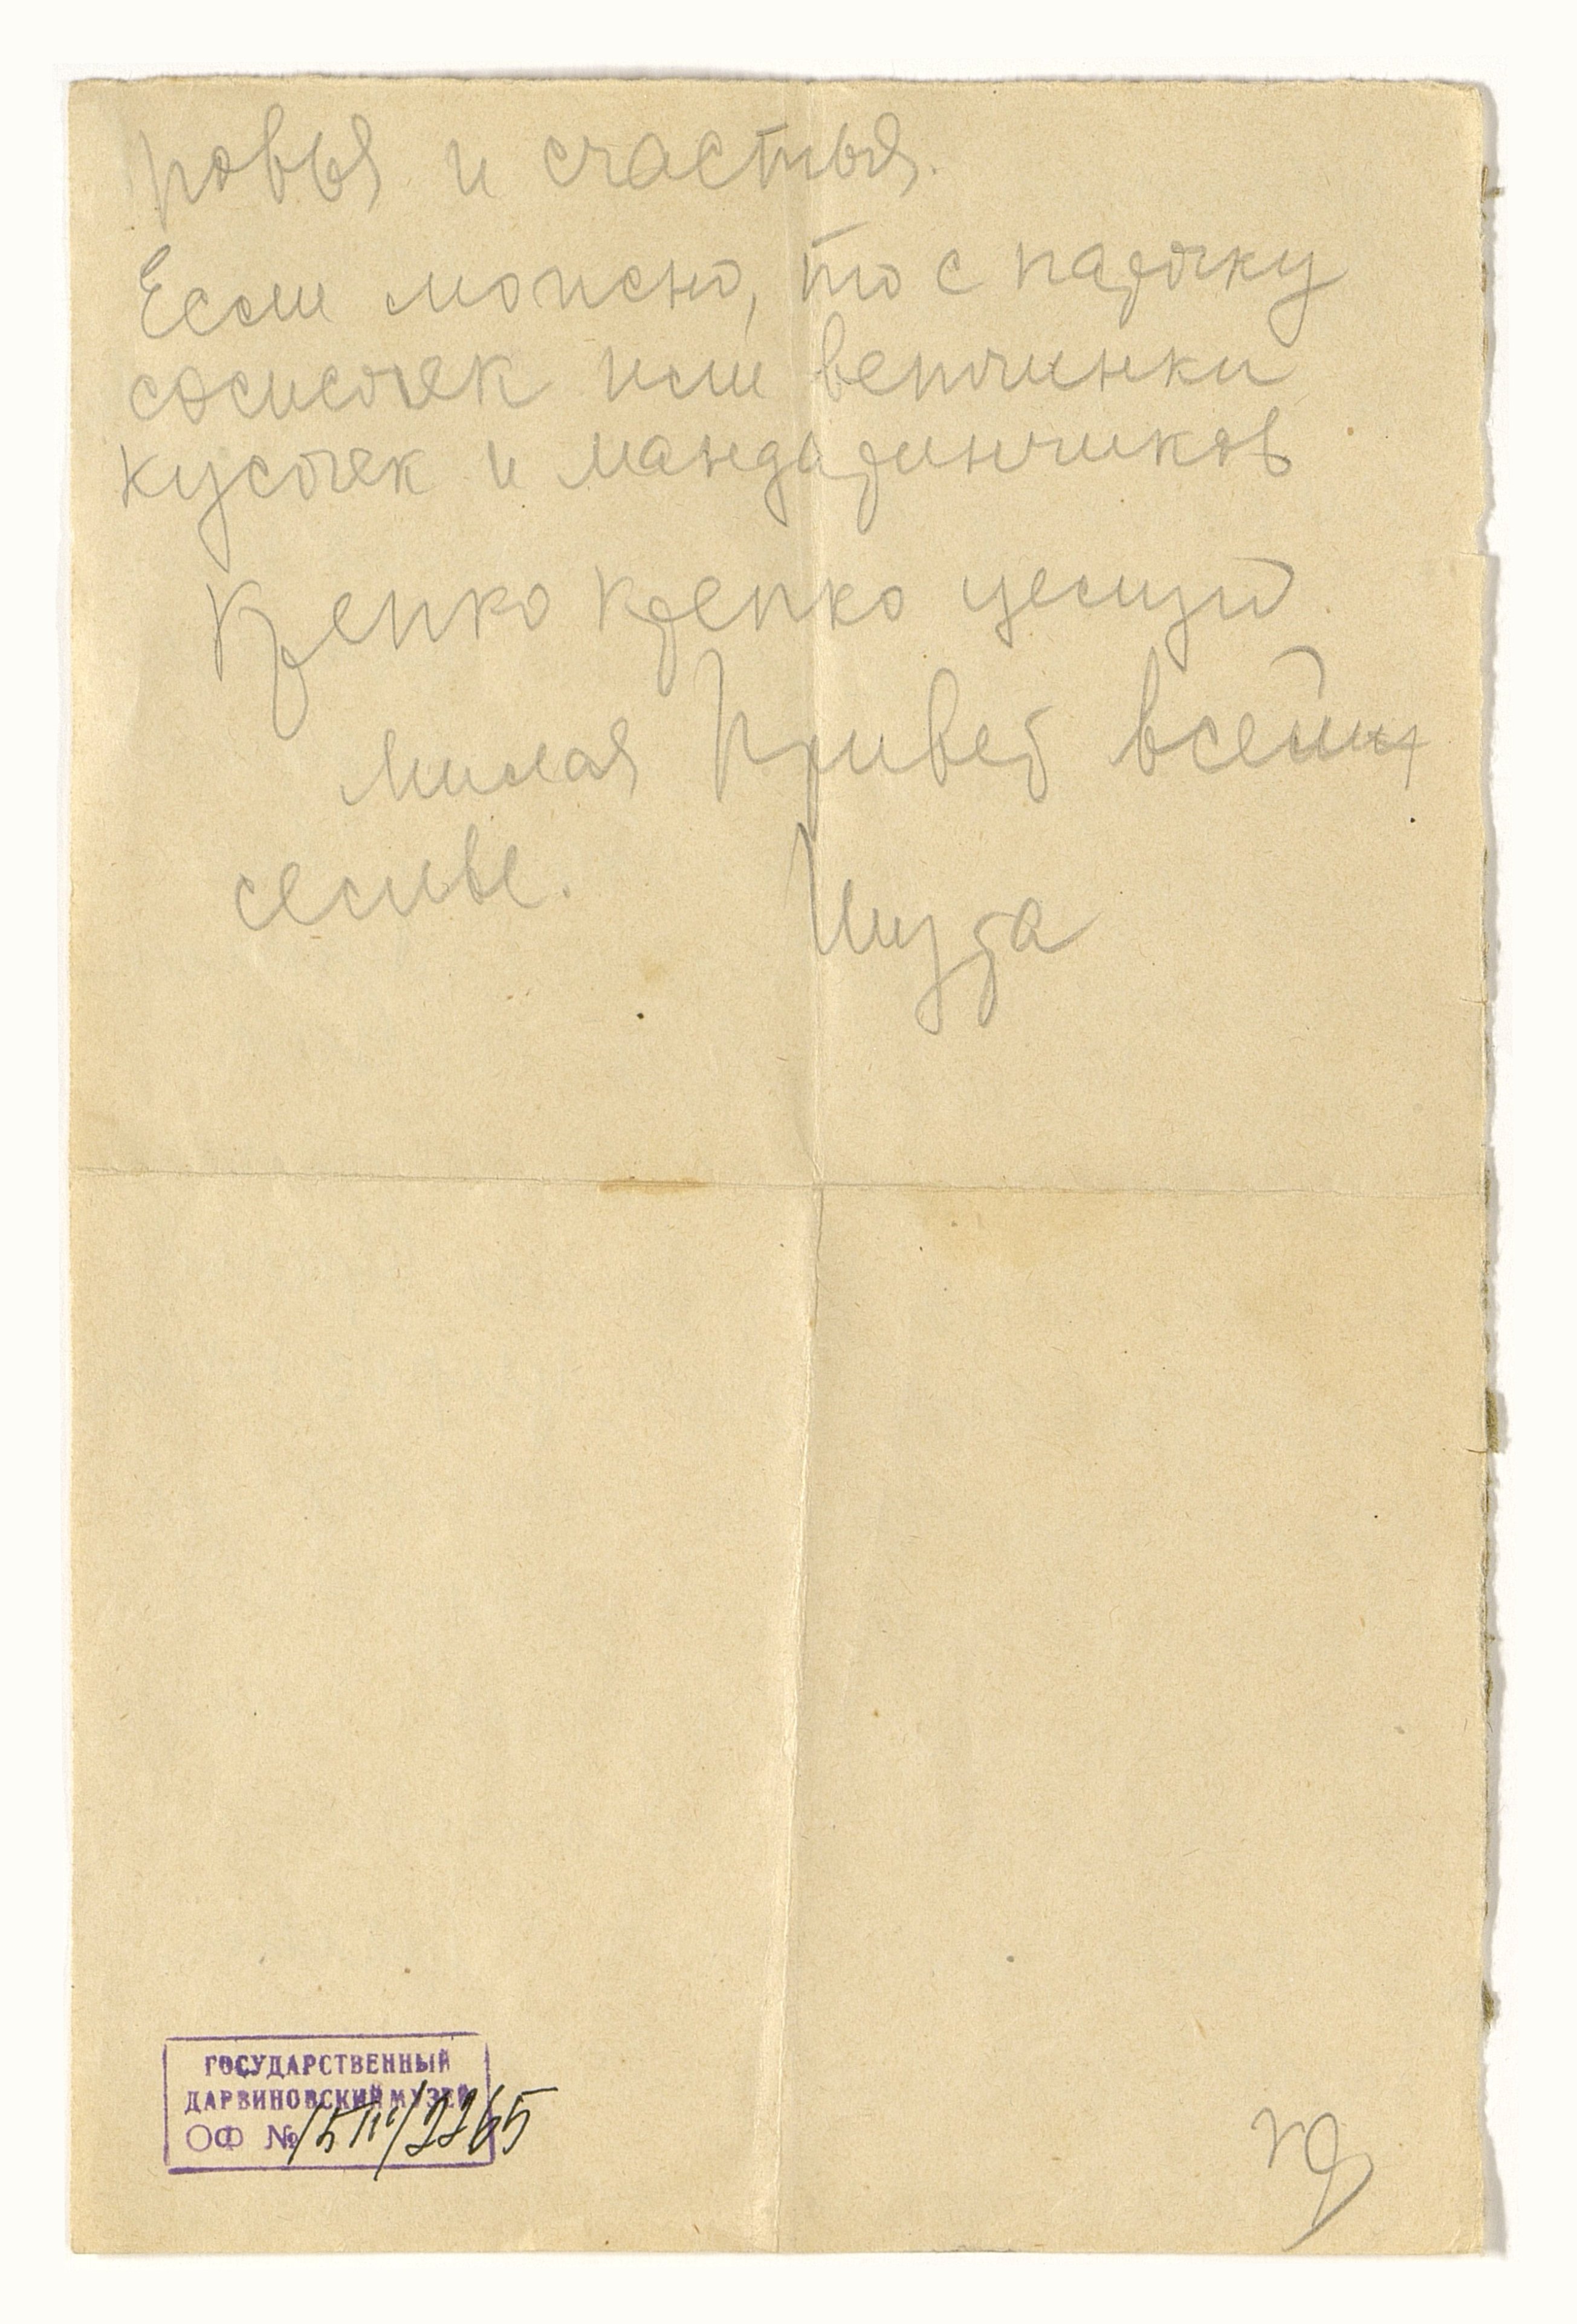 ровья и счастья.
Если можно, то с парочку
сосисочек или ветчинки
кусочек и мандаринчиков
Крепко крепко целую
милая Привет всей
семье. Шура
ГОСУДАРСТВЕННЫЙ
ДАРВИНОВСКИЙ МУЗЕЙ
ОФ №